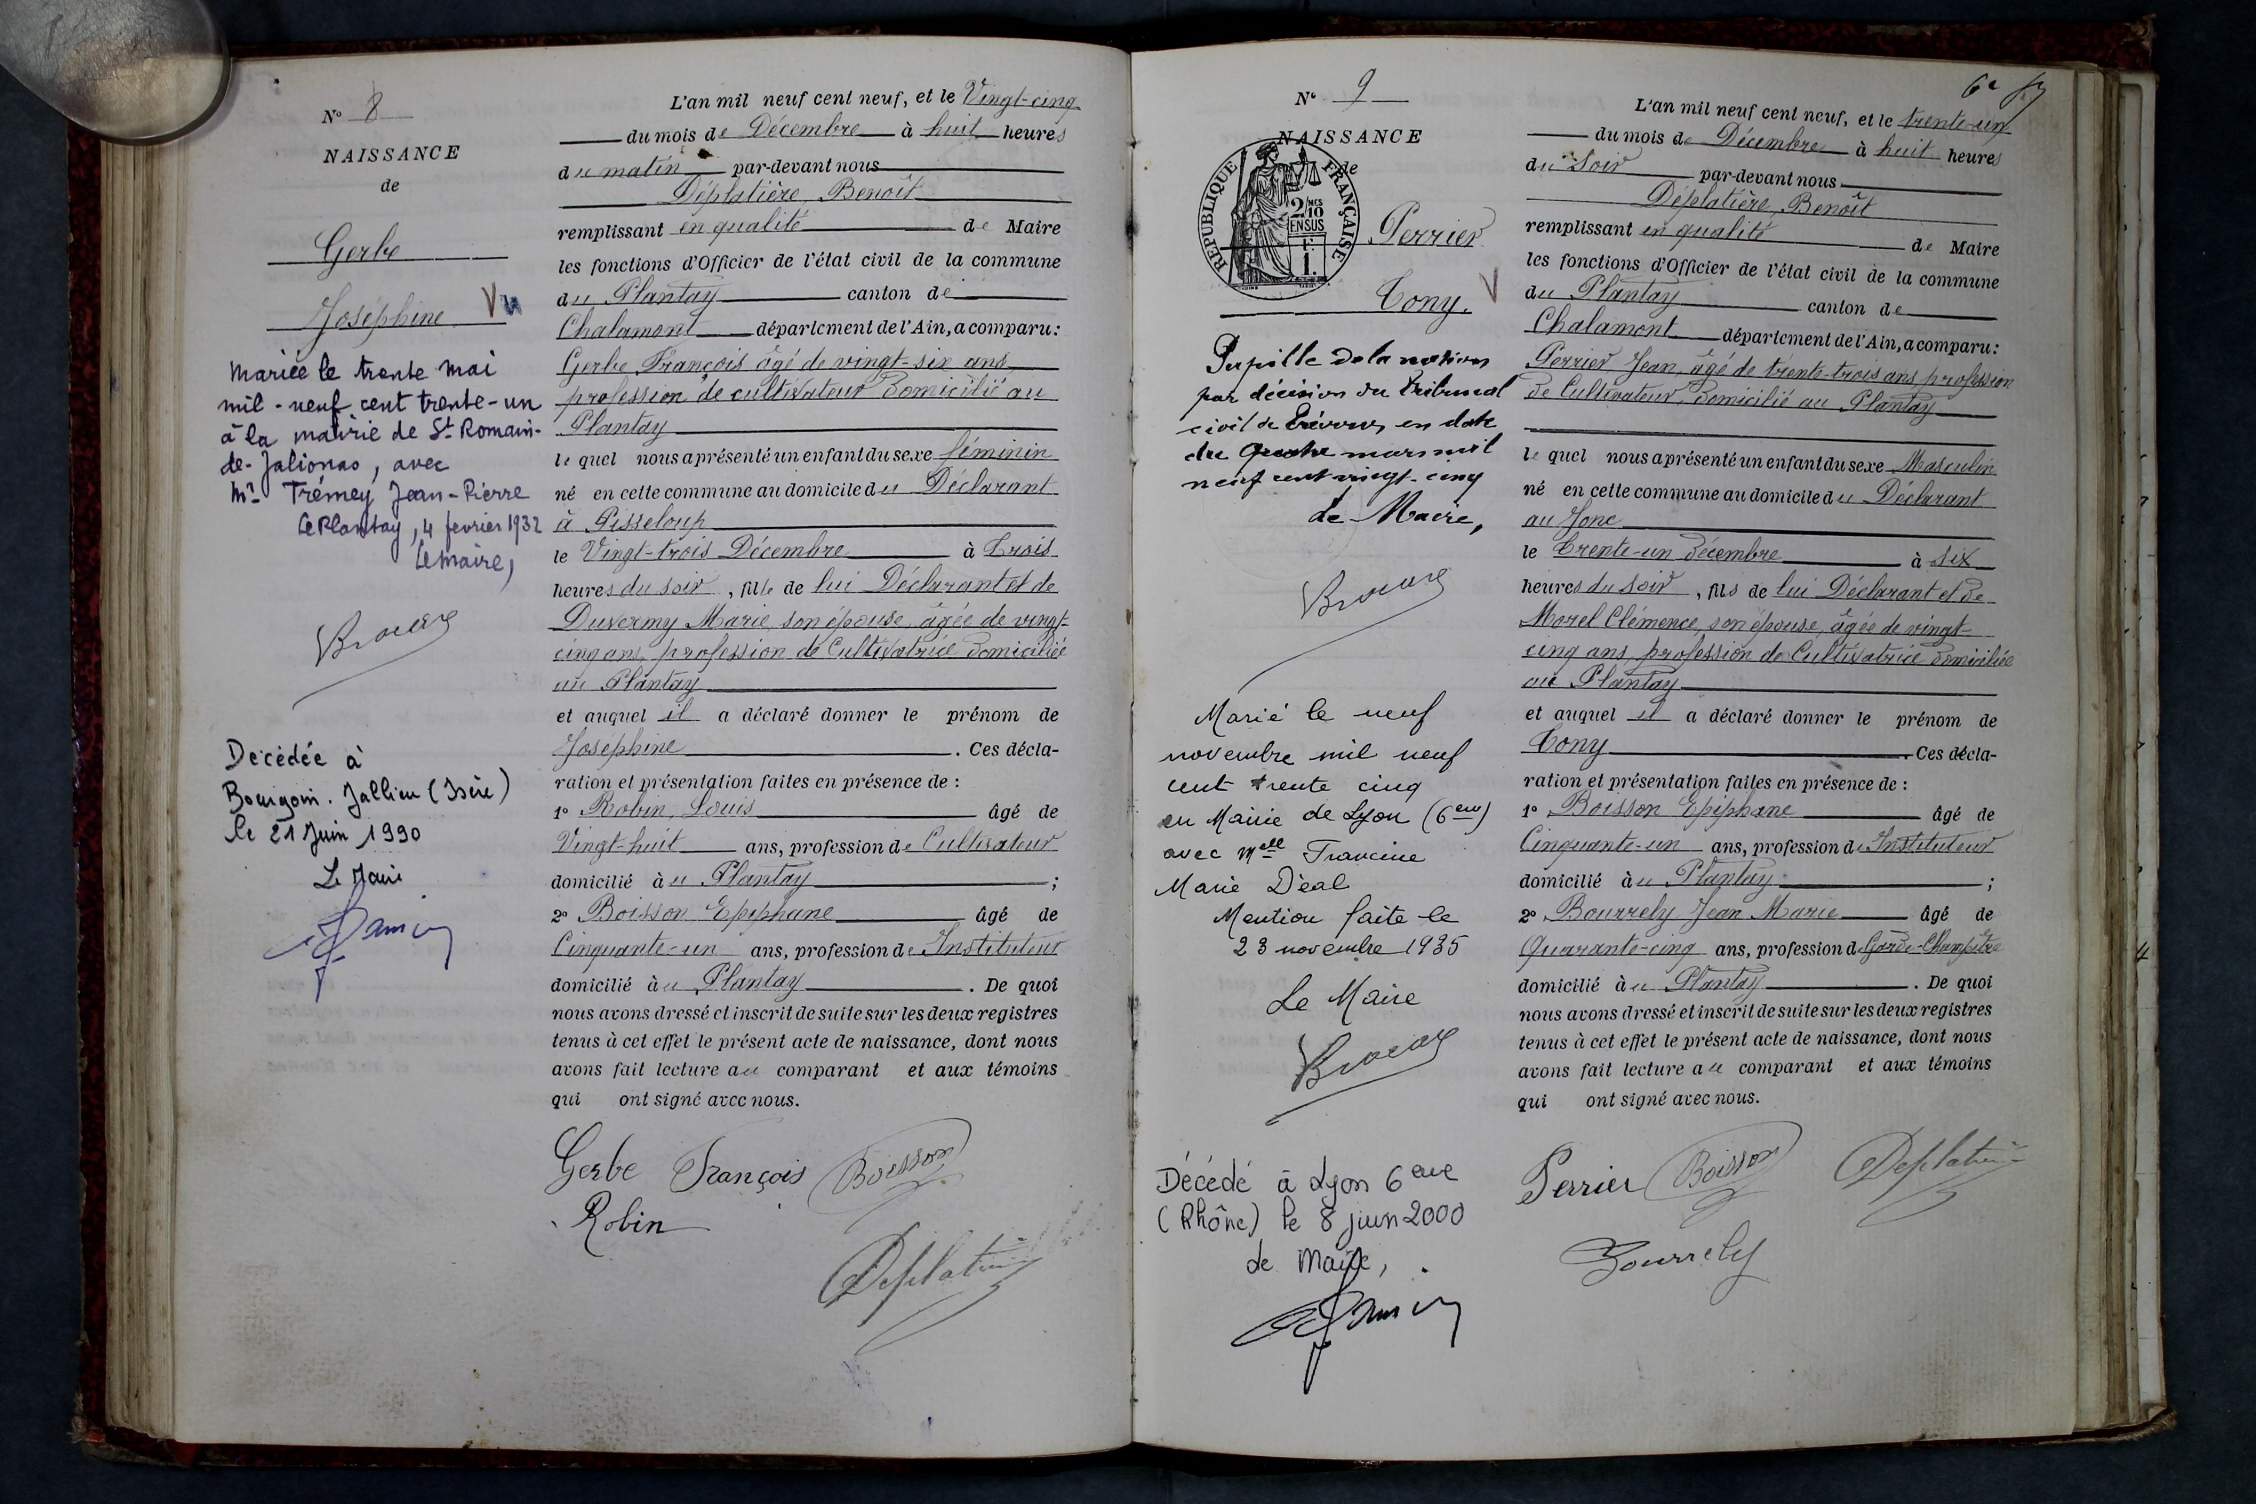 N° 8
NAISSANCE
de
Gerbe
Joséphine Vu
Mariée le trente mai
mil-neuf cent trente-un
à la mairie de St Romain-
de-Jalionas, avec
Mr Trémey Jean-Pierre
Le Plantay, 4 février 1932
Le Maire,
Décédée à
Bourgoin.Jallieu (Isère)
le 21 Juin 1990
Le Maire
L'an mil neuf cent neuf, et le Vingt-cinq
du mois de Décembre à huit heures
du matin par-devant nous
Déplatière, Benoît
remplissant en qualité de Maire
les fonctions d'Officier de l'état civil de la commune
du Plantay canton de
Chalamont département de l'Ain, a comparu:
Gerbe François âgé de vingt-six ans
profession de cultivateur domicilié au
Plantay
le quel nous a présenté un enfant du sexe féminin
né en cette commune au domicile du Déclarant
à Pisseloup
le Vingt-trois Décembre à Trois
heures du soir, fille de lui Déclarant et de
Duvermy Marie, son épouse, âgée de vingt-
cinq ans, profession de Cultivatrice domiciliée
au Plantay
et auquel il a déclaré donner le prénom de
Joséphine. Ces décla-
ration et présentation faites en présence de:
1° Robin, Louis âgé de
Vingt-huit ans, profession de Cultivateur
domicilié au Plantay;
2° Boisson Epiphane âgé de
Cinquante-un ans, profession de Instituteur
domicilié au Plantay. De quoi
nous avons dressé et inscrit de suite sur les deux registres
tenus à cet effet le présent acte de naissance, dont nous
avons fait lecture au comparant et aux témoins
qui ont signé avec nous.
Gerbe François Boisson
Robin
Deplatière
N° 9
NAISSANCE
de
RÉPUBLIQUE FRANÇAISE
2/10 MES
EN SUS
1 F.
Perrier
Tony. V
Pupille de la nation
par décision du Tribunal
civil de Trévoux en date
du quatre mars mil
neuf cent vingt-cinq
Le Maire,
Marié le neuf
novembre mil neuf
cent trente cinq
en Mairie de Lyon (6eme)
avec Melle Francine
Marie Déal
Mention faite le
23 novembre 1935
Le Maire
Décédé à Lyon 6eme
(Rhône) le 8 juin 2000
Le Maire,
L'an mil neuf cent neuf, et le trente-un
du mois de Décembre à huit heures
du soir par-devant nous
Déplatière, Benoît
remplissant en qualité de Maire
les fonctions d'Officier de l'état civil de la commune
du Plantay canton de
Chalamont département de l'Ain, a comparu:
Perrier Jean, âgé de trente-trois ans, profession
de Cultivateur, domicilié au Plantay
le quel nous a présenté un enfant du sexe Masculin
né en cette commune au domicile du Déclarant
au Jonc
le Trente-un décembre à six
heures du soir, fils de lui Déclarant et de
Morel Clémence, son épouse, âgée de vingt-
cinq ans, profession de Cultivatrice domiciliée
au Plantay
et auquel il a déclaré donner le prénom de
Tony. Ces décla-
ration et présentation faites en présence de:
1° Boisson Epiphane âgé de
Cinquante-un ans, profession d'Instituteur
domicilié au Plantay;
2° Bourrely Jean Marie âgé de
Quarante-cinq ans, profession de Garde-Champêtre
domicilié au Plantay. De quoi
nous avons dressé et inscrit de suite sur les deux registres
tenus à cet effet le présent acte de naissance, dont nous
avons fait lecture au comparant et aux témoins
qui ont signé avec nous.
Perrier Boisson Deplatière
Bourrely